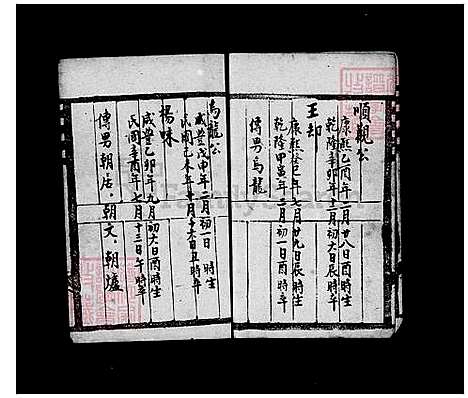 順觀公
康熙乙酉年二月廿八日酉時生
乾隆辛卯年十二月初六日辰時卒
王却
康熙癸巳年七月廿九日辰時生
乾隆甲寅年二月初一日酉時卒
傳男烏龍
烏龍公
咸豐戊申年二月初一日 時生
民國己未年十一月十六日丑時卒
楊味
咸豐乙卯年九月初六日酉時生
民國辛酉年七月十三日午時卒
傳男朝居．朝文．朝爐